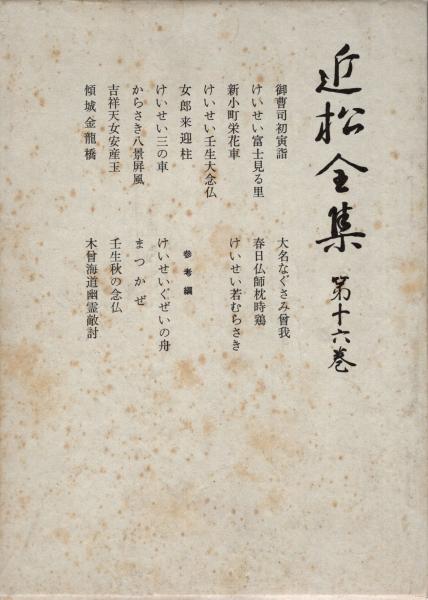 近松全集 第十六巻
御曹司初寅詣
けいせい富士見る里
新小町栄花車
けいせい壬生大念仏
女郎来迎柱
けいせい三の車
からさき八景屏風
吉祥天女安産玉
傾城金龍橋
大名なぐさみ曾我
春日仏師枕時鶏
けいせい若むらさき
参考編
けいせいぐぜいの舟
まつかぜ
壬生秋の念仏
木曾海道幽霊敵討